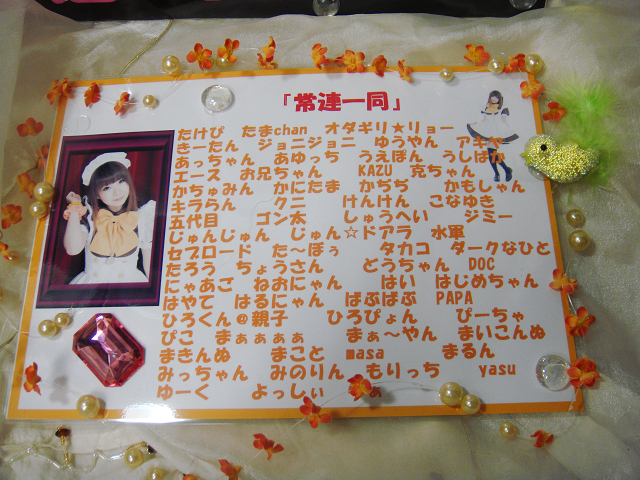 『常連一同』
たけぴ たまchan オダギリ★リョー
きーたん ジョニジョニ ゆうやん アキヤ
あっちゃん あゆっち うえぽん うしばか
エース お兄ちゃん KAZU 克ちゃん
かちゅみん かにたま かぢぢ かもしゃん
キラらん クニ けんけん こなゆき
五代目 ゴン太 しゅうへい ジミー
じゅんじゅん じゅん☆ドアラ 水軍
セブロード た～ぼぅ タカコ ダークなひと
たろう ちょうさん どうちゃん DOC
にゃあご ねおにゃん はい はじめちゃん
はやて はるにゃん ぱぷぱぷ PAPA
ひろくん@親子 ひろぴょん ぴーちゃ
ぴこ まぁぁぁぁ まぁ～やん まいこんぬ
まきんぬ まこと masa まるん
みっちゃん みのりん もりっち yasu
ゆーく よっしぃ